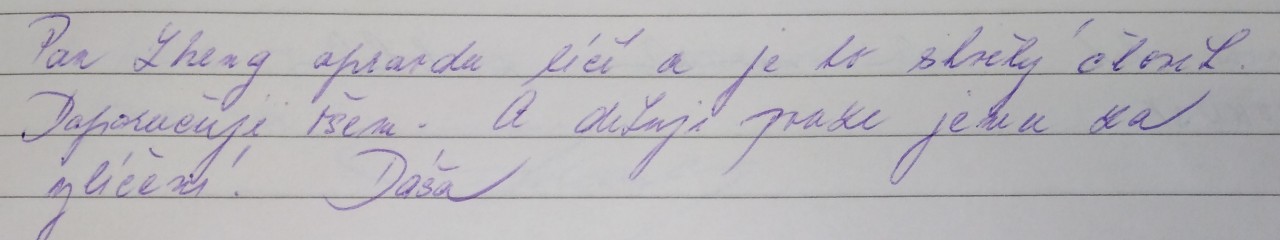 Pan Zheng opravdu léčí a je to skvělý člověk.
Doporučuji všem. A děkuji panu jemu za
vyléčení. Dáša